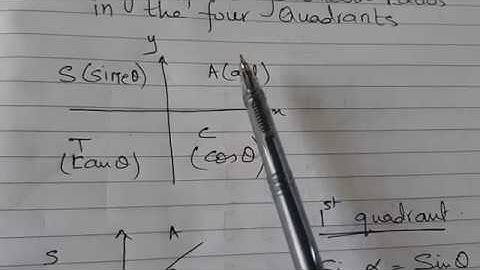 in the four Quadrants
y
S (sineθ) A (all)
x
T C
(tanθ) (cosθ)
1st quadrant
S A
Sin α = Sinθ